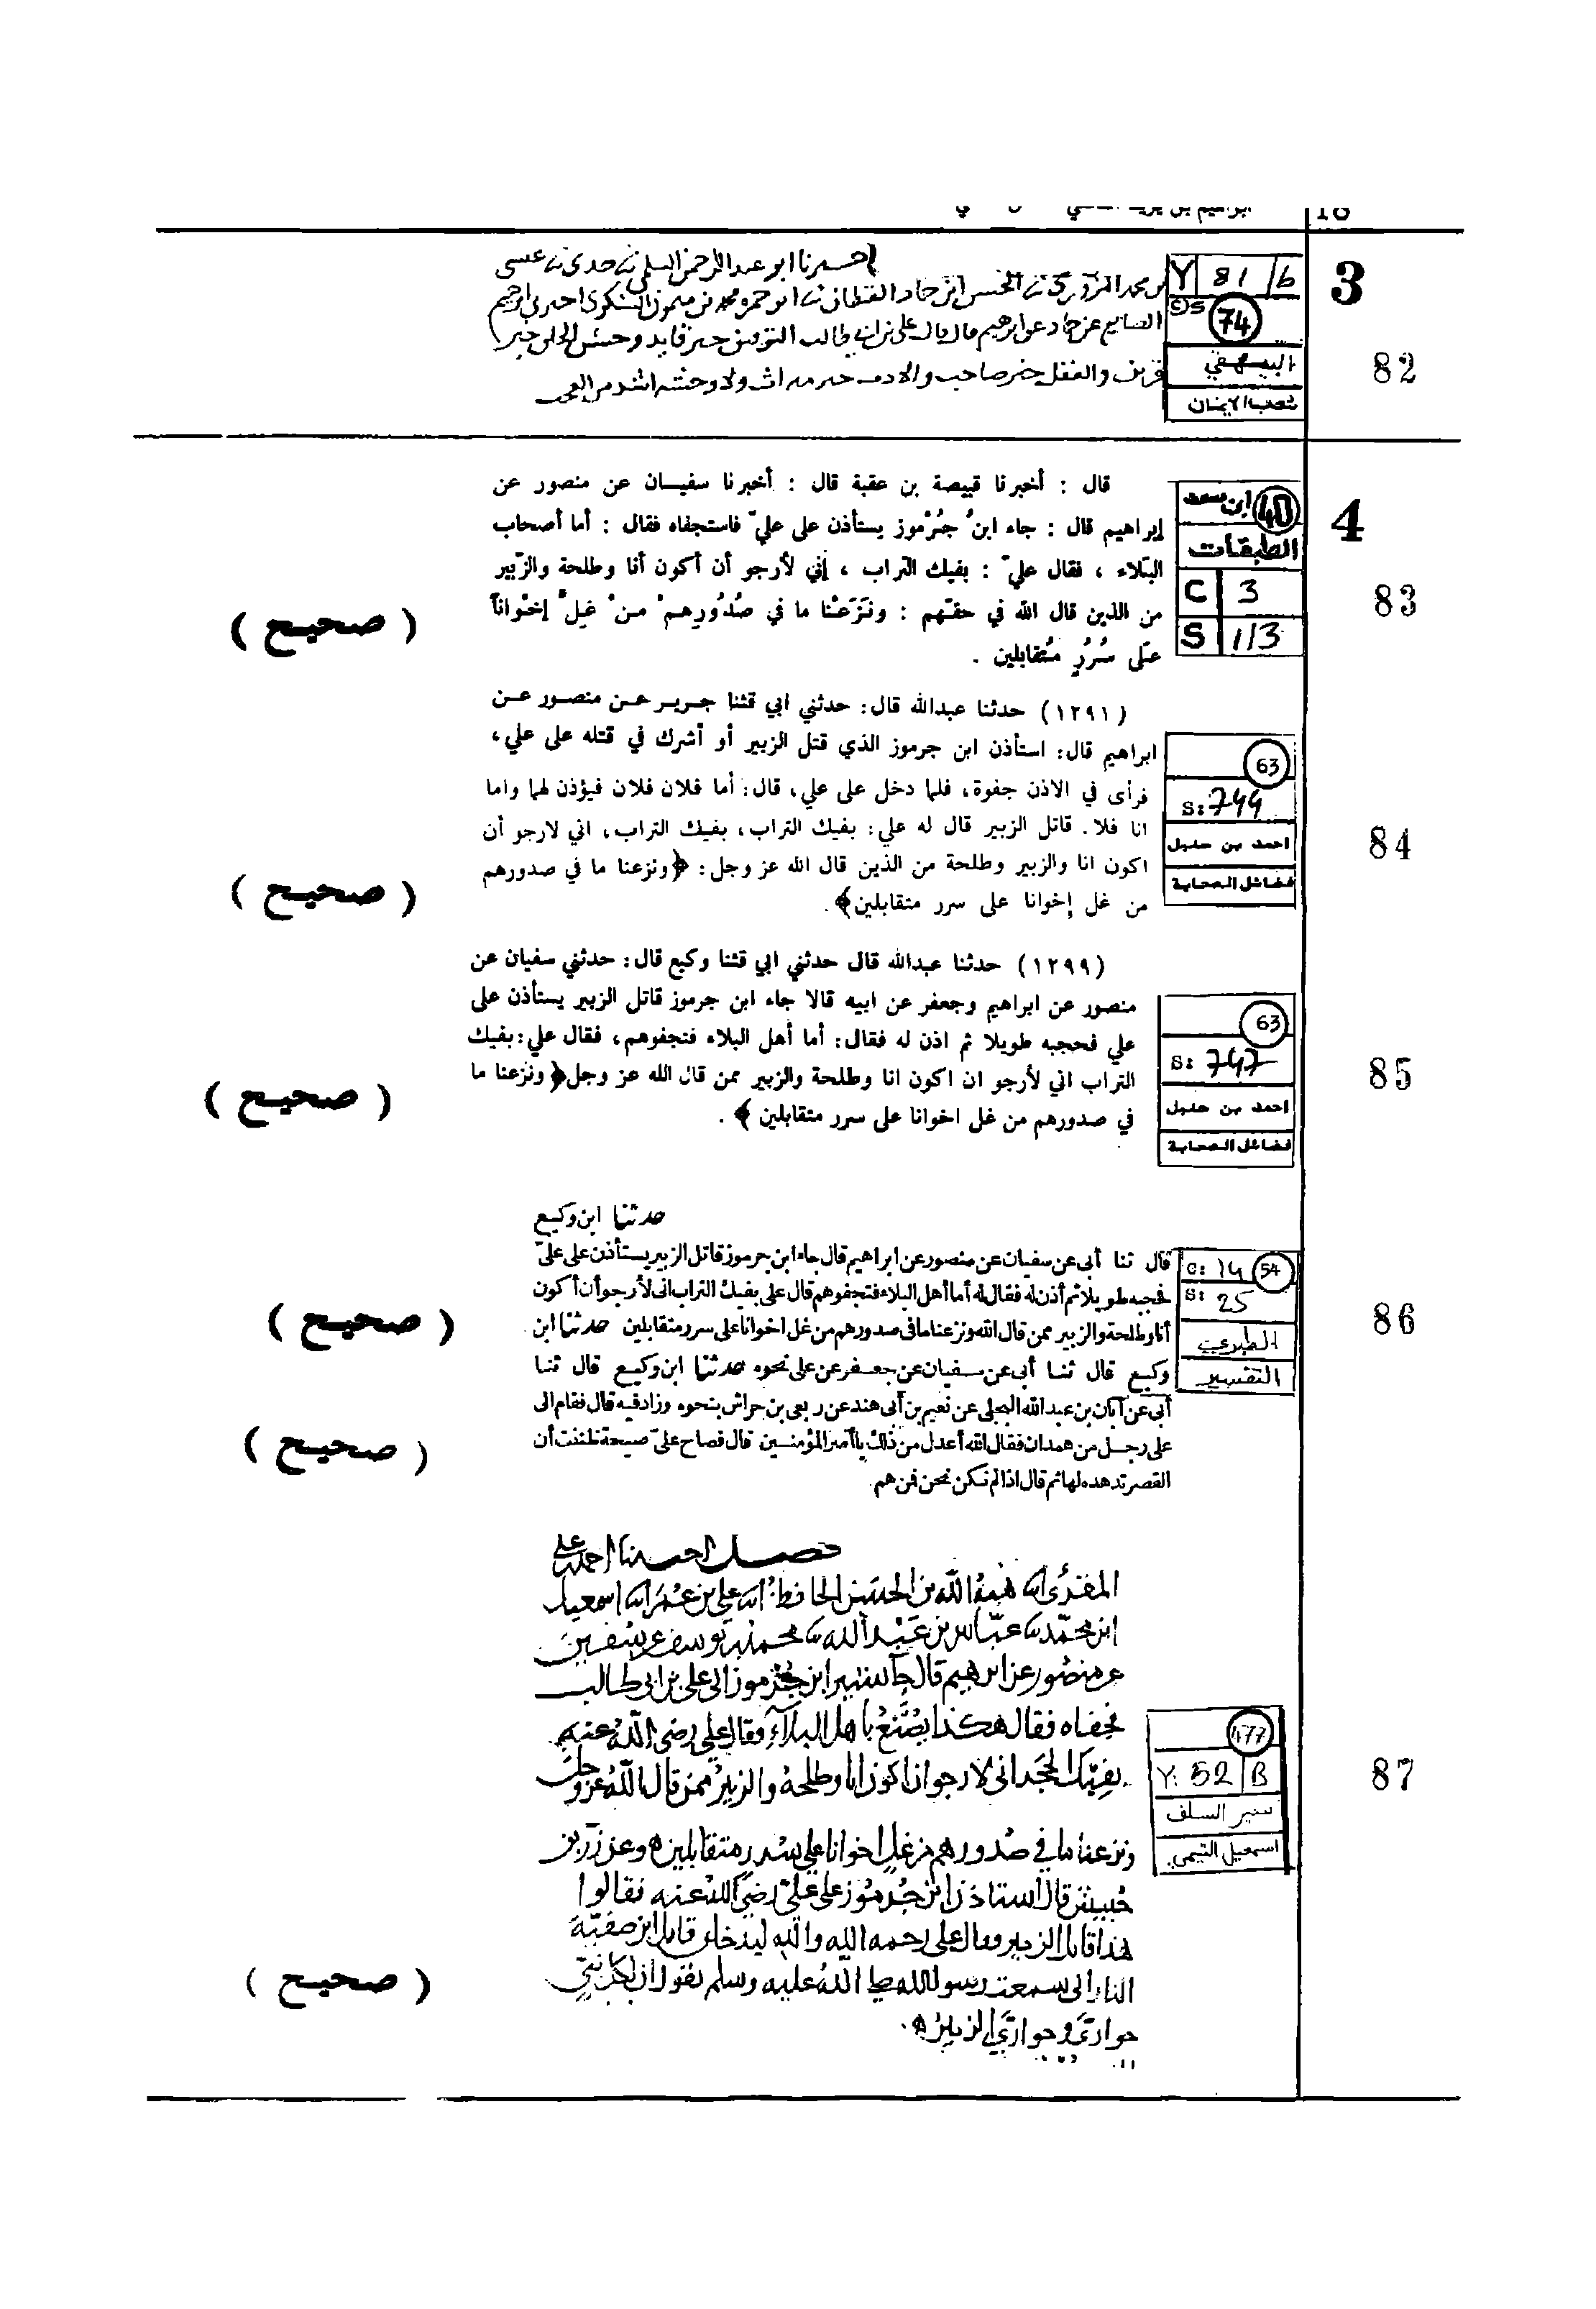 18
3
82
Y 81/b
74
البيهقي
شعب الايمان
اخبرنا ابو عبد الرحمن السلمي
قرين والعقل خير صاحب والادب خير ميراث ولا وحشة اشد من العجب
4
83
40 ابن سعد
الطبقات
C 3
S 113
قال : أخبرنا قبيصة بن عقبة قال : أخبرنا سفيان عن منصور عن
إبراهيم قال : جاء ابنُ جُرْموز يستأذن على عليّ فاستجفاه فقال : أما أصحاب
البلاء ، فقال عليّ : بفيك التراب ، إني لأرجو أن أكون أنا وطلحة والزّبير
من الذين قال الله في حقّهم : ونَزَعْنا ما في صُدُورِهِمْ مِنْ غِلٍّ إخْواناً
عَلى سُرُرٍ مُتقابلين .
( صحيح )
84
63
S: 744
احمد بن حنبل
فضائل الصحابة
(١٢٩١) حدثنا عبدالله قال: حدثني ابي قثنا جرير عن منصور عن
ابراهيم قال: استأذن ابن جرموز الذي قتل الزبير أو أشرك في قتله على علي،
فرأى في الاذن جفوة، فلما دخل على علي، قال: أما فلان فلان فيؤذن لهما واما
انا فلا. قاتل الزبير قال له علي: بفيك التراب، بفيك التراب، اني لارجو أن
اكون انا والزبير وطلحة من الذين قال الله عز وجل: ﴿ونزعنا ما في صدورهم
من غل إخوانا على سرر متقابلين﴾.
( صحيح )
85
63
S: 747
احمد بن حنبل
فضائل الصحابة
(١٢٩٩) حدثنا عبدالله قال حدثني ابي قثنا وكيع قال: حدثني سفيان عن
منصور عن ابراهيم وجعفر عن ابيه قالا جاء ابن جرموز قاتل الزبير يستأذن على
علي فحجبه طويلا ثم اذن له فقال: أما أهل البلاء فتجفوهم، فقال علي: بفيك
التراب اني لأرجو ان اكون انا وطلحة والزبير ممن قال الله عز وجل﴿ ونزعنا ما
في صدورهم من غل اخوانا على سرر متقابلين ﴾ .
( صحيح )
86
C: 14 54
S: 25
الطبري
التفسير
حدثنا ابن وكيع
قال ثنا أبى عن سفيان عن منصور عن ابراهيم قال جاء ابن جرموز قاتل الزبير يستأذن على علىّ
فحجبه طويلا ثم أذن له فقال له أما أهل البلاء فتجفوهم قال على بفيك التراب انى لأرجو أن أكون
أنا وطلحة والزبير ممن قال الله ونزعنا ما فى صدورهم من غل اخوانا على سرر متقابلين حدثنا ابن
وكيع قال ثنا أبى عن سفيان عن جعفر عن على نحوه حدثنا ابن وكيع قال ثنا
أبى عن أبان بن عبد الله البجلى عن نعيم بن أبى هند عن ربعى بن حراش بنحوه وزاد فيه قال فقام الى
على رجل من همدان فقال الله أعدل من ذلك يا أمير المؤمنين قال فصاح علىّ صيحة ظننت أن
القصر تدهده لها ثم قال اذا لم نكن نحن فمن هم
( صحيح )
( صحيح )
87
477
Y: 52/B
سير السلف
اسمعيل التيمي
فصل اخبرنا احمد بن علي
المقرئ هبة الله بن الحسن الحافظ علي بن عمر اسمعيل
ابن محمد عباس بن عبد الله محمد بن يوسف عن سفين
عن منصور عن ابرهيم قال جآ ابن جرموز الى علي بن ابي طالب
فجفاه فقال هكذا يُصْنَعُ باهل البلآءِ فقال علي رضي اللهُ عنه
بفيك الحجر اني لارجو ان اكون انا وطلحة والزبير ممن قال اللهُ عز وجل
ونزعنا ما في صدورهم من غل اخوانا علي سرر متقابلين وعن زر بن
حُبيش قال استاذن ابن جُرموز على علي رضي الله عنه فقالوا
هذا قاتل الزبير فقال علي رحمه الله والله ليدخلن قاتل ابن صفية
النار اني سمعت رسول الله صلى اللهُ عليه وسلم يقول ان لكل نبي
حواري وحواري الزبير
( صحيح )